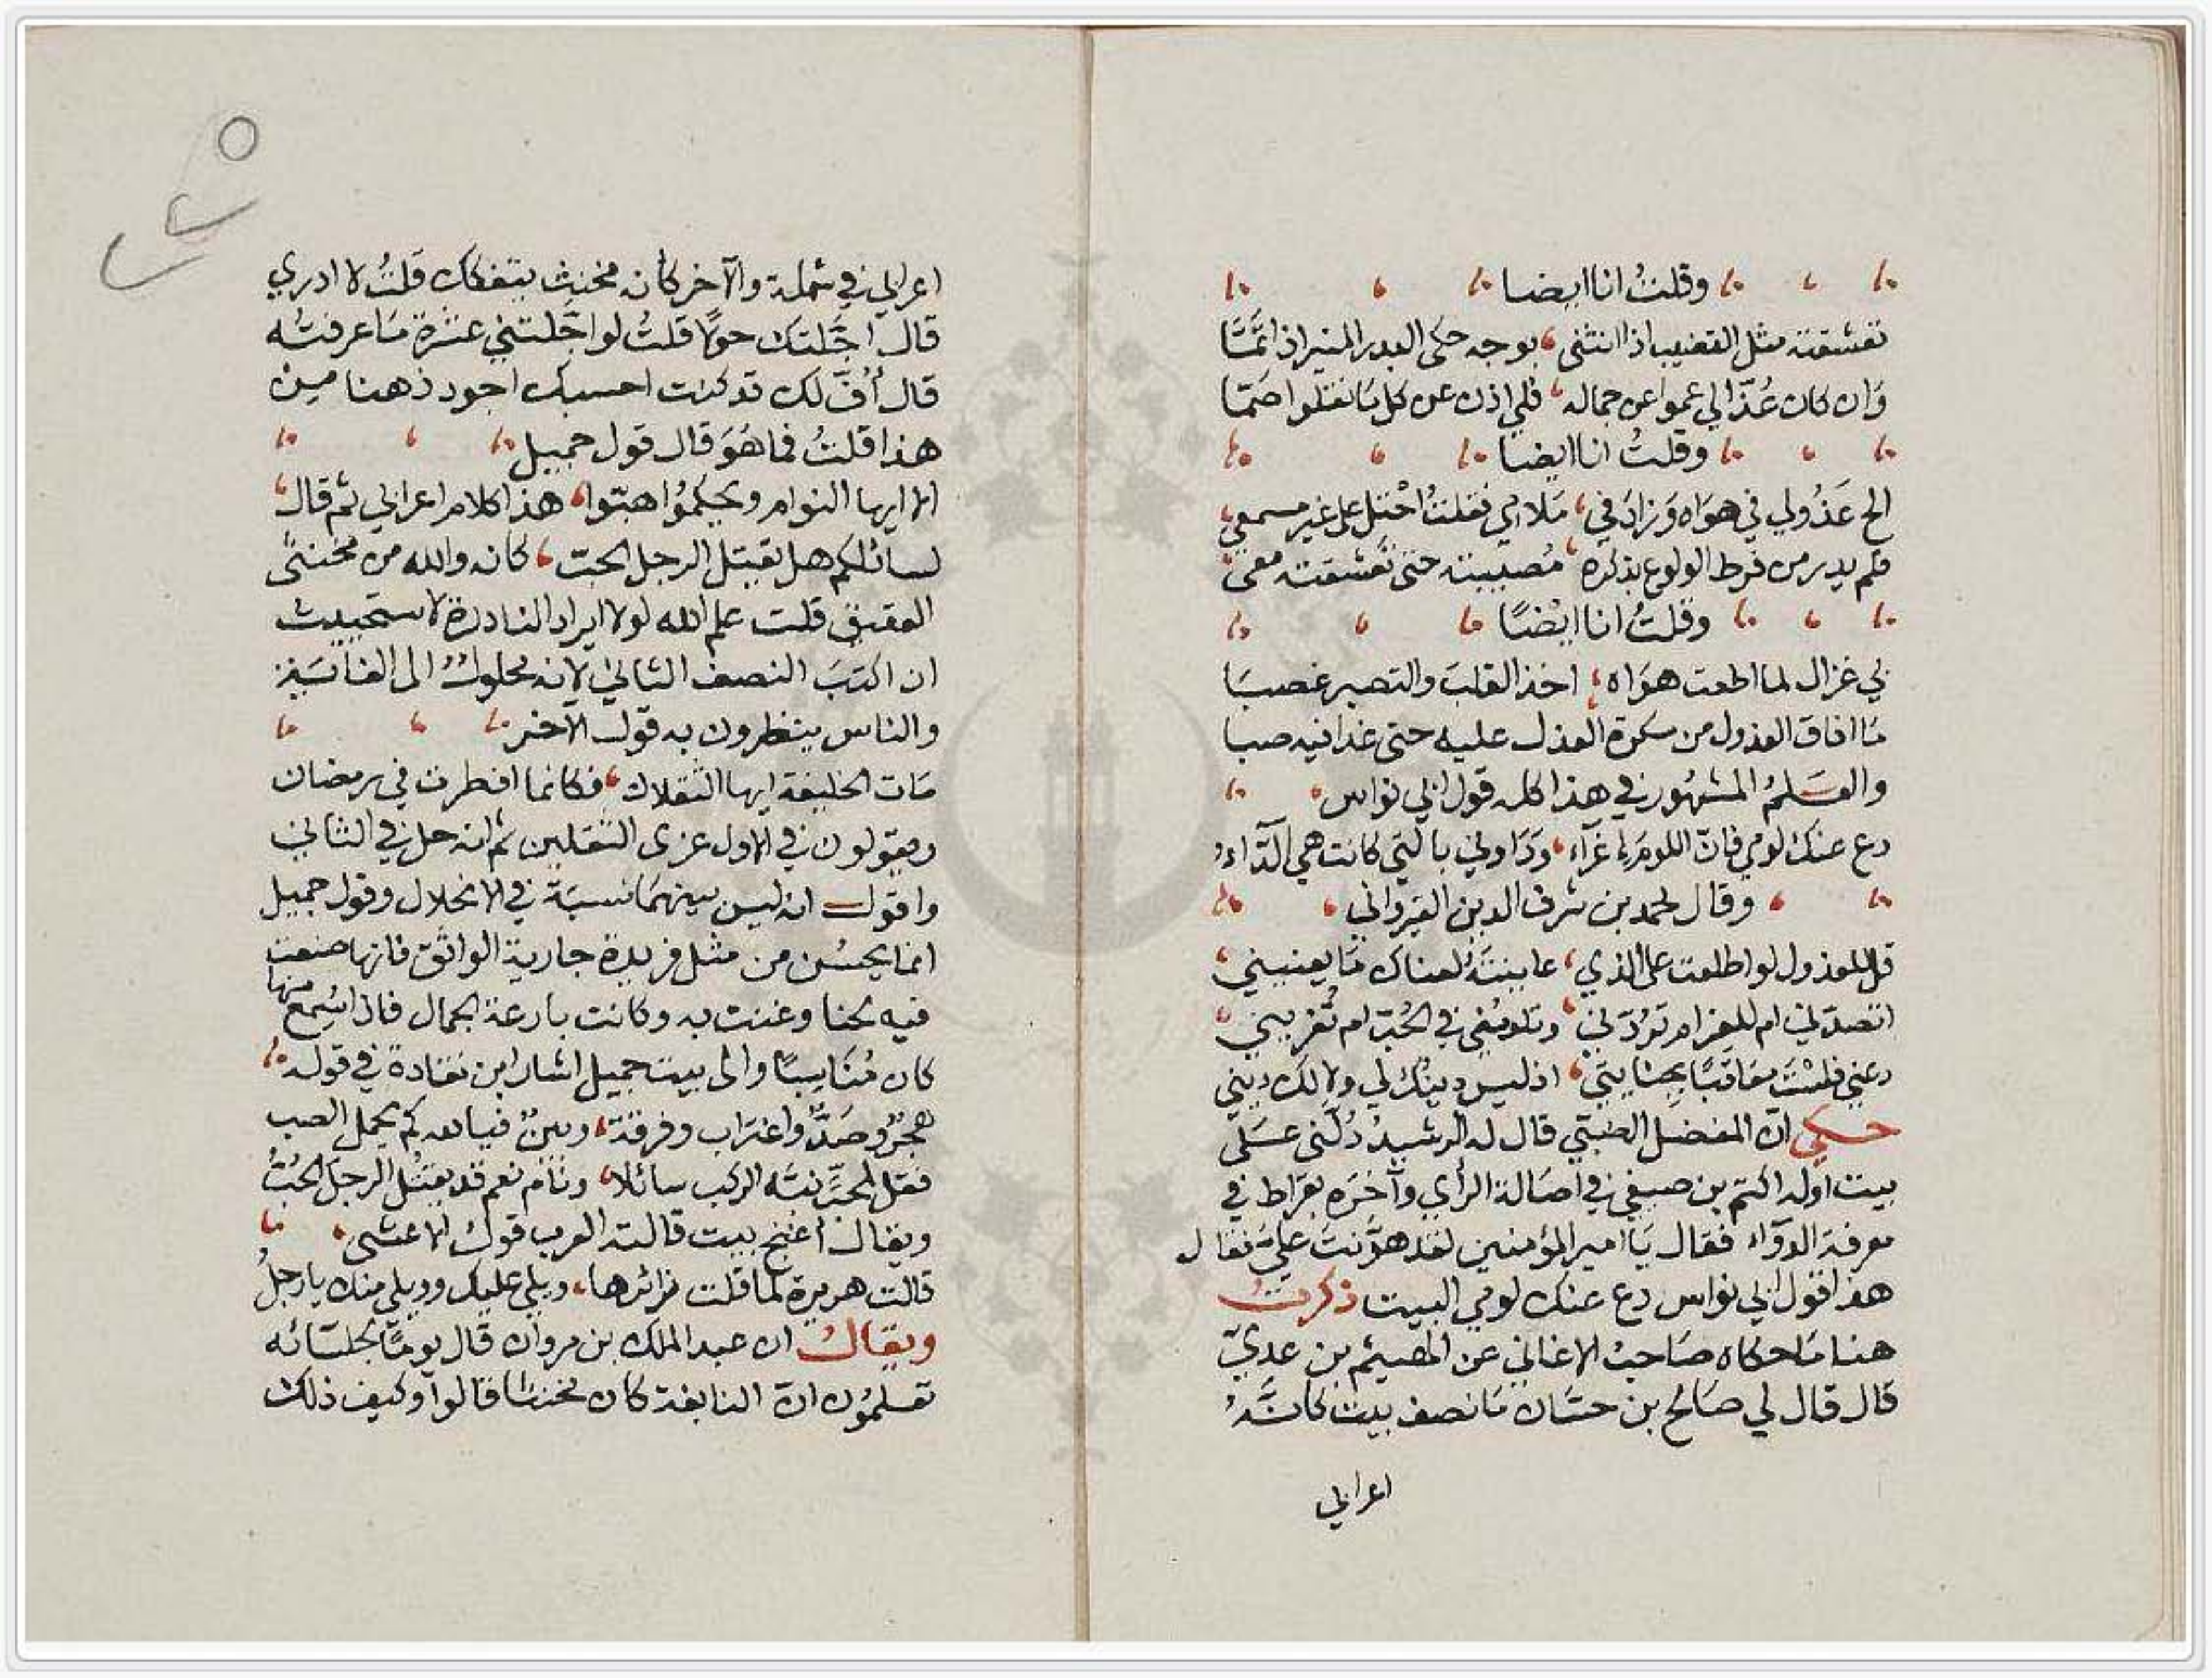 وقلتُ انا ايضا
تعشقته مثل القضيب اذا انثنى بوجه حكى البدر المنير اذا تمّا
وَان كان عُذّالي عموا عن جماله فلي اذن عن كل مَا نقلوا صَمّا
وقلتُ انا ايضا
الح عَذُولي في هوَاه وَزادَ في مَلامي فقلتُ احْتل على غير مسمعي
فلم يدر من فرط الولوع بذكره مُصيبته حتى تعشقته معي
وقلتُ انا ايْضًا
بي غزال لما اطعت هوَاه اخذ القلبَ والتصبر غصبَا
مَا افاق العذول من سكرة العذل عليه حتى غدا فيه صبا
والعَلمُ المشهُور في هذا كله قول ابي نواس
دع عنك لومي فانّ اللومَ اغرَآء ودَاوني بالتي كانت هي الدّآء
وقال محمد بن شرف الدين القيرواني
قل للعذول لو اطلعت على الذي عاينتَهُ لعناك مَا يعنيني
اتصدّني ام للغرام تردّني وتلومُني في الحُبّ ام تُغريني
دعني فلسْتَ معَاقَبًا بجنايتي اذ ليس دينُك لي ولا لَك ديني
حكي انّ المفضل الضبّي قال له الرشيدُ دُلّني عَلَى
بيت اوله اكثم بن صيفي في اصَالة الرأي وآخرَه بقرَاط في
معرفة الدوَآء فقال يَا امير المؤمنين لقد هوَّنتَ عَليّ فقال
هذا قول ابي نواس دع عنك لومي البيت ذكرتُ
هنا مَا حكاه صَاحبُ الاغاني عن الهيثم بن عديّ
قال قال لي صَالح بن حسّان مَا نصف بيت كانّهُ
اعرابي
اعرابي في شملة والآخر كانه مخنث يتفكك قلتُ لا ادري
قال اجّلتك حولًا قلتُ لو اجّلتني عشرة مَا عرفتُه
قال أُفّ لك قد كنت احسبك اجود ذهنا مِن
هذا قلتُ فما هُوَ قال قول جميل
الا ايها النوام ويحكمُوا هبّوا هذا كلام اعرابي ثم قال
اسائلكم هل يقتل الرجل الحبّ كانه والله من مخنثي
العقيق قلت علم الله لولا ايراد النادرة لاستحييت
ان اكتبَ النصف الثاني لانه محلولٌ الى الغايَة
والناس ينظرون به قول الآخر
مَات الخليفة ايها الثقلان فكانما افطرت في رمضان
ويقولون في الاول عزى الثقلين ثم انه حل في الثاني
واقول انه ليس بينهمَا نسبَة في الانحلال وقول جميل
انما يحسُن من مثل فريدة جارية الواثق فانها صنعت
فيه لحنا وغنت به وكانت بارعة الجمال فاذا سُمع منها
كان مُنَاسبًا والى بيت جميل اشار ابن نقادة في قوله
هجرٌ وصَدٌّ واغترَاب وفرقة وبينٌ فيا لله كم يحمل الصب
فقل لمحبٍّ نبَّه الركب سائلا ونَامَ نعم قد يقتل الرجلَ الحُبُّ
ويقال اغنج بيت قالته العرب قول الاعشى
قالت هريرة لما قلت زائرها ويلي عليك وويلي منك يا رجلُ
ويقال ان عبد الملك بن مروان قال يومًا لجلسَائه
تعلمُون انّ النابغة كان مخنثا قالوا وكيف ذلك